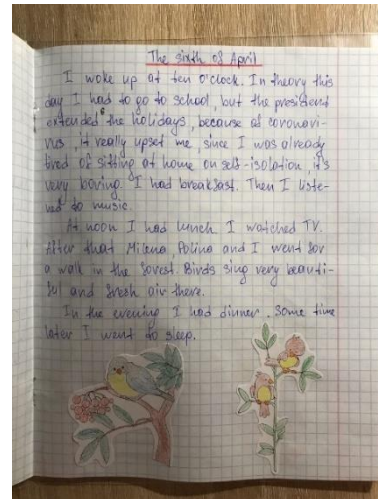 The sixth of April
I woke up at ten o'clock. In theory this
day I had to go to school, but the president
extended the holidays, because of coronavi-
rus, it really upset me, since I was already
tired of sitting at home on self-isolation, it's
very boring. I had breakfast. Then I liste-
ned to music.
At noon I had lunch. I watched TV.
After that Milena, Polina and I went for
a walk in the forest. Birds sing very beauti-
ful and fresh air there.
In the evening I had dinner. Some time
later I went to sleep.